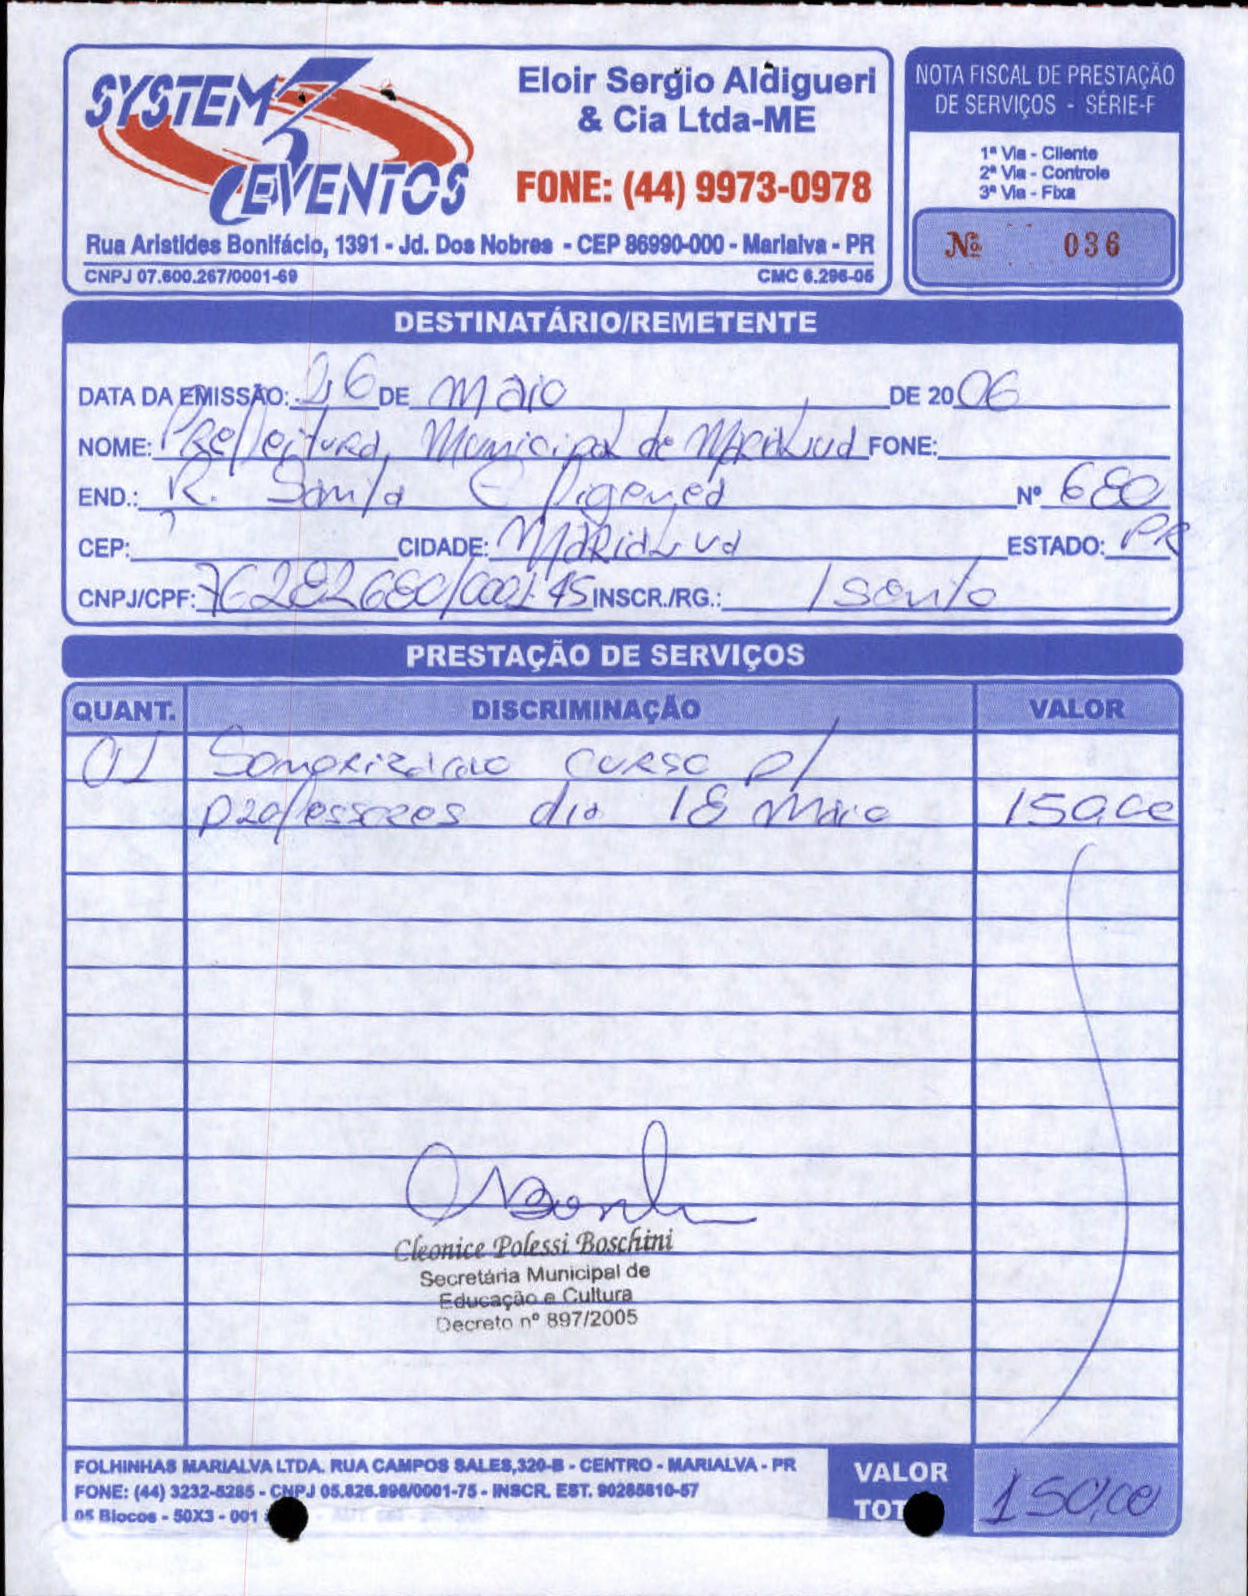 SYSTEM 3 EVENTOS
Eloir Sergio Aldigueri
& Cia Ltda-ME
FONE: (44) 9973-0978
Rua Aristides Bonifácio, 1391 - Jd. Dos Nobres - CEP 86990-000 - Marialva - PR
CNPJ 07.600.267/0001-69 CMC 6.296-05
NOTA FISCAL DE PRESTAÇÃO
DE SERVIÇOS - SÉRIE-F
1ª Via - Cliente
2ª Via - Controle
3ª Via - Fixa
Nº 036
DESTINATÁRIO/REMETENTE
DATA DA EMISSÃO: 26 DE Maio DE 2006
NOME: Prefeitura Municipal de Marialva FONE:
END.: R. Santa Efigenea Nº 680
CEP: CIDADE: Marialva ESTADO: PR
CNPJ/CPF: 76282680/0001-45 INSCR./RG.: Isento
PRESTAÇÃO DE SERVIÇOS
QUANT. DISCRIMINAÇÃO VALOR
01 Sonorização curso p/
professores dia 18 Maio 150,00
Cleonice Polessi Boschini
Secretária Municipal de
Educação e Cultura
Decreto nº 897/2005
FOLHINHAS MARIALVA LTDA. RUA CAMPOS SALES,320-B - CENTRO - MARIALVA - PR
FONE: (44) 3232-5285 - CNPJ 05.826.998/0001-75 - INSCR. EST. 90285810-57
05 Blocos - 50X3 - 001
VALOR
150,00